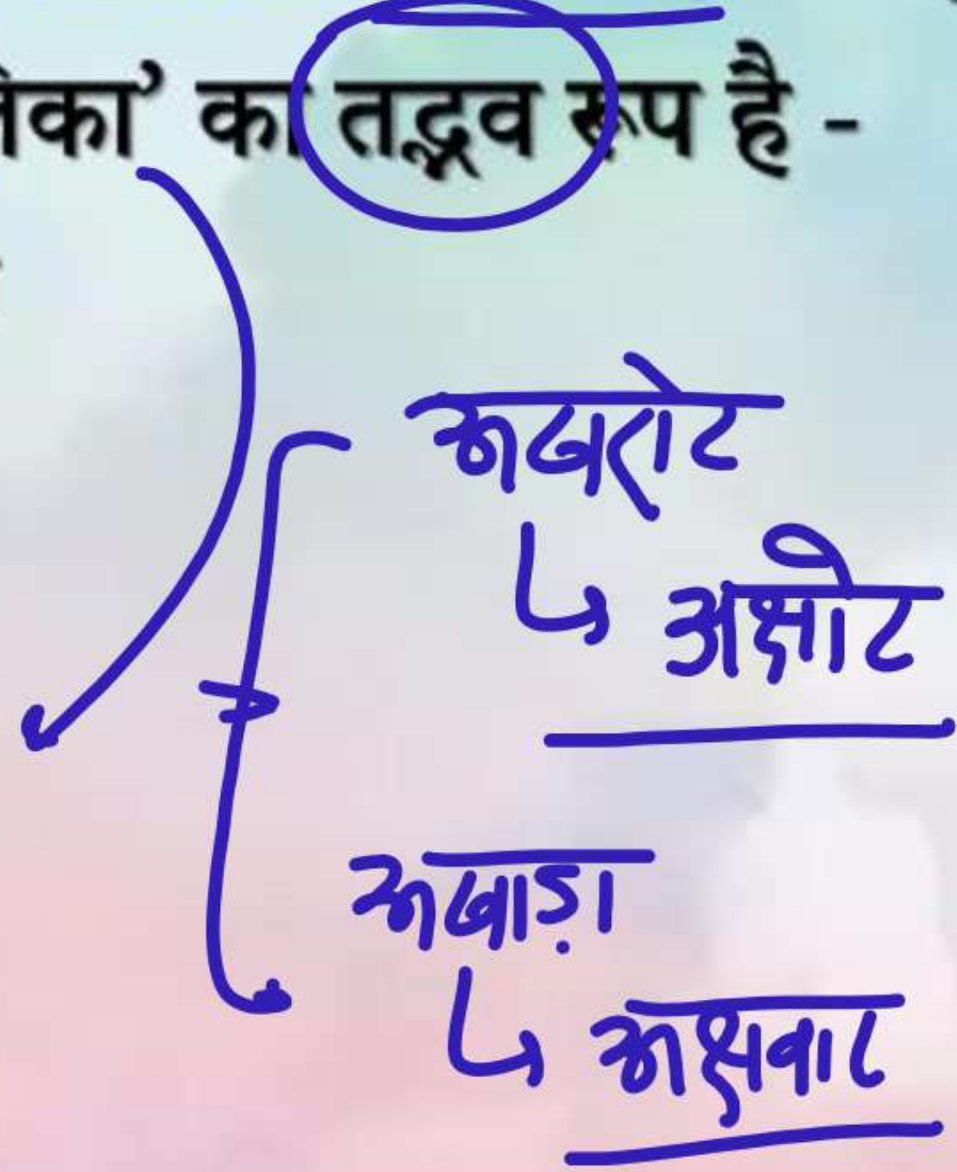 का' का तद्भव रूप है -
अखरोट
↳ अक्षोट
अखाड़ा
↳ अक्षवाट